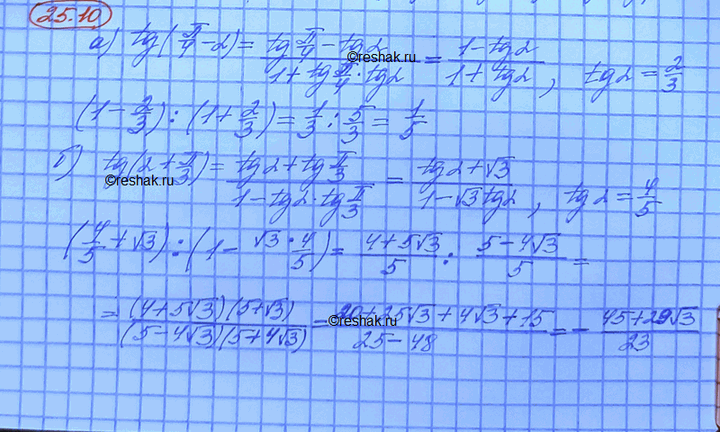 25.10
а) tg(π/4 - α) = (tg π/4 - tg α)/(1 + tg π/4 · tg α) = (1 - tg α)/(1 + tg α), tg α = 2/3
reshak.ru
(1 - 2/3) : (1 + 2/3) = 1/3 : 5/3 = 1/5
б) tg(α + π/3) = (tg α + tg π/3)/(1 - tg α · tg π/3) = (tg α + √3)/(1 - √3 tg α), tg α = 4/5
©reshak.ru
(4/5 + √3) : (1 - √3 · 4/5) = (4 + 5√3)/5 : (5 - 4√3)/5 =
= (4 + 5√3)(5 + √3)/(5 - 4√3)(5 + 4√3) = (20 + 25√3 + 4√3 + 15)/(25 - 48) = - (45 + 29√3)/23
©reshak.ru